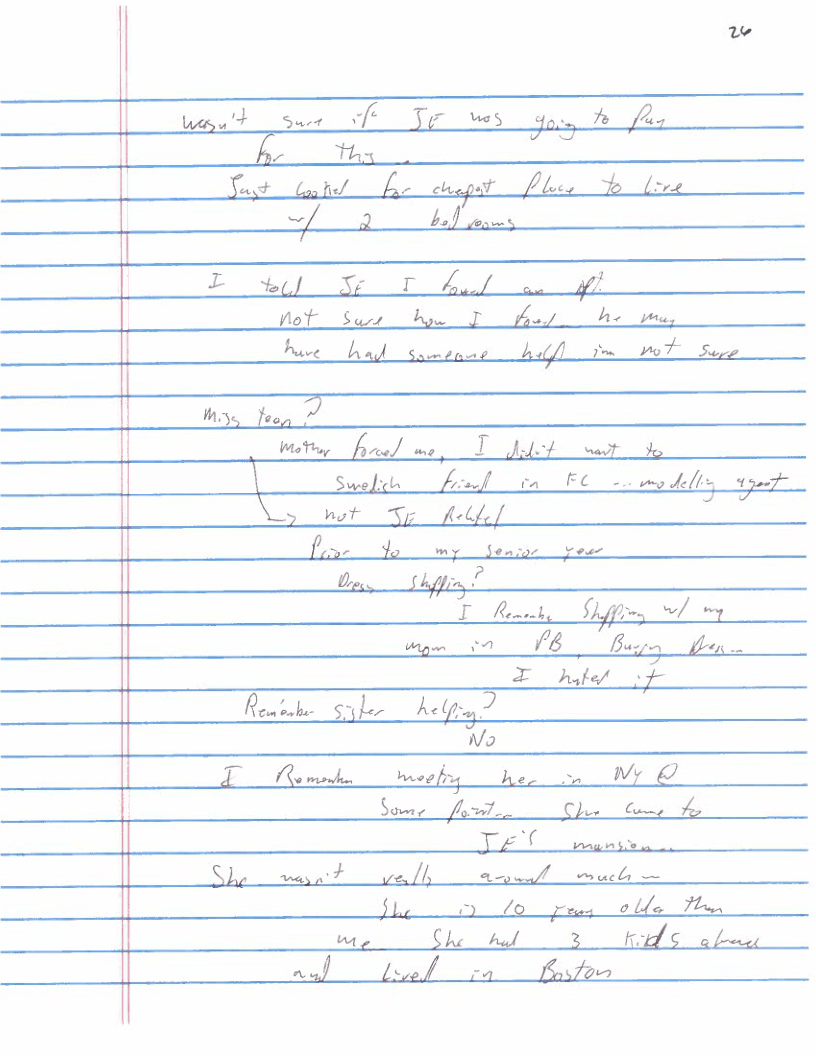 26
wasn't sure if JE was going to pay
for this -
Just looked for cheapest place to live
w/ 2 bedrooms
I told JE I found an Apt.
not sure how I found he may
have had someone help im not sure
Miss teen?
mother forced me, I didn't want to
Swedish friend in FL --- modelling agent
→ not JE Related
Prior to my senior year
Dress shopping?
I Remember Shopping w/ my
mom in PB, Buying Dress --
I hated it
Remember sister helping?
NO
I Remember meeting her in NY @
some point -- She came to
JE's mansion --
She wasn't really around much -
She is 10 years older than
me She had 3 kids
and lived in Boston